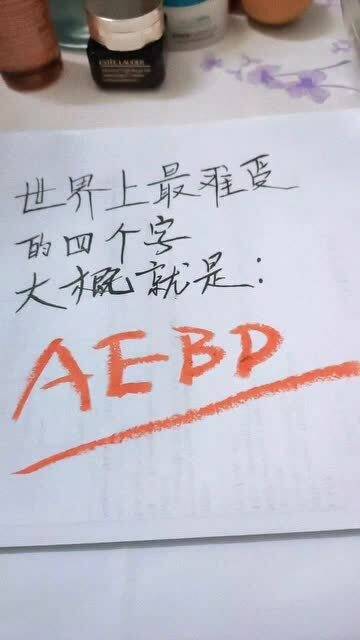 ESTÉE LAUDER
世界上最难受
的四个字
大概就是:
AEBD